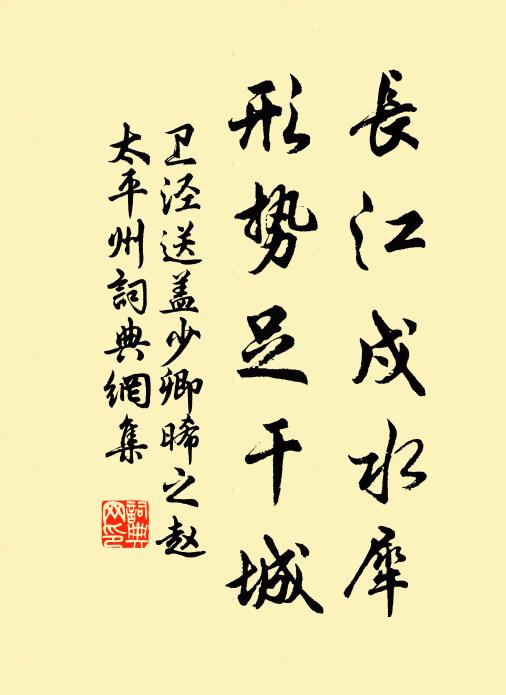 長江戍水犀
形势足干城
卫泾送盖少卿晞之赵
太平州詞典網集
詞典
网印